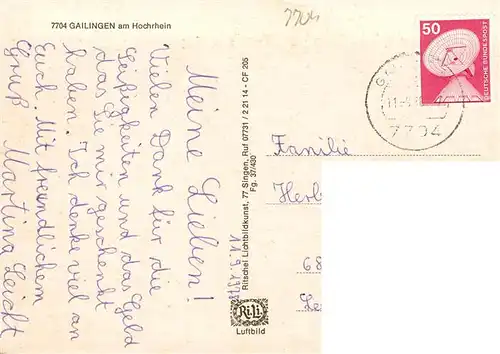 7704 GAILINGEN am Hochrhein
7704
Meine Lieben!
Vielen Dank für die
Süßigkeiten und das Geld
das Sie mir geschenkt
haben. Ich denke viel an
Euch. Mit freundlichem
Gruß
Martina Leicht
11.9.1978
Ritschel Lichtbildkunst, 77 Singen, Ruf 07731 / 2 21 14 - CF 205
Fg. 37/430
Ri.Li.
Luftbild
50
DEUTSCHE BUNDESPOST
7704
Familie
Herb
68